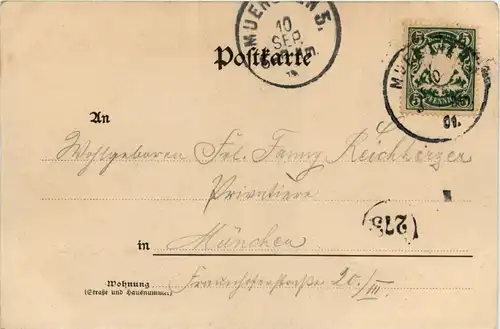 MUENCHEN 5.
10
SEP.
Postkarte
5 5
5 PFENNIG 5
10
01.
An
Wohlgeboren Frl. Fanny Reichberger
Privatiere
(273)
in München
Wohnung
(Straße und Hausnummer)
Fraunhoferstraße 20/III.